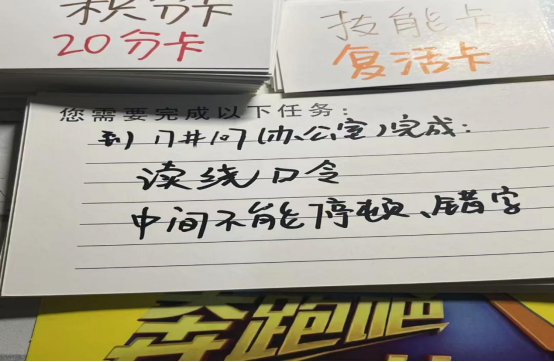 积分卡
20分卡
技能卡
复活卡
您需要完成以下任务:
到7#107(办公室)完成:
读绕口令
中间不能停顿、错字
奔跑吧